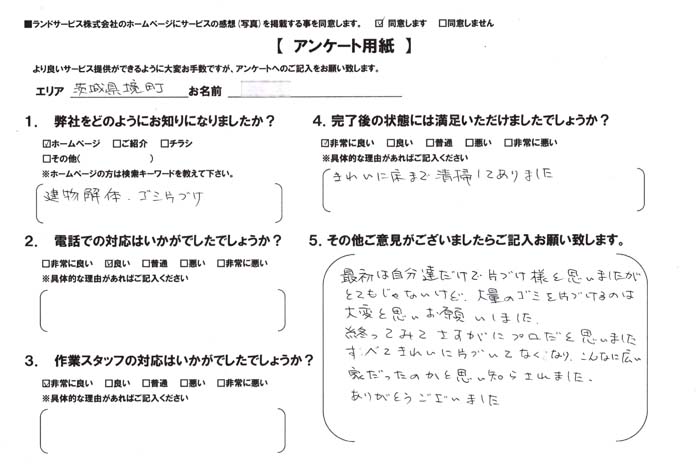 ■ランドサービス株式会社のホームページにサービスの感想(写真)を掲載する事を同意します。 ☑同意します □同意しません
【 アンケート用紙 】
より良いサービス提供ができるように大変お手数ですが、アンケートへのご記入をお願い致します。
エリア 茨城県境町 お名前
1. 弊社をどのようにお知りになりましたか?
☑ホームページ □ご紹介 □チラシ
□その他( )
※ホームページの方は検索キーワードを教えて下さい。
建物解体.ゴミ片づけ
2. 電話での対応はいかがでしたでしょうか?
□非常に良い ☑良い □普通 □悪い □非常に悪い
※具体的な理由があればご記入ください
3. 作業スタッフの対応はいかがでしたでしょうか?
☑非常に良い □良い □普通 □悪い □非常に悪い
※具体的な理由があればご記入ください
4. 完了後の状態には満足いただけましたでしょうか?
☑非常に良い □良い □普通 □悪い □非常に悪い
※具体的な理由があればご記入ください
きれいに床まで清掃してありました
5. その他ご意見がございましたらご記入お願い致します。
最初は自分達だけで片づけ様と思いましたが
とてもじゃないけど、大量のゴミを片づけるのは
大変と思いお願いしました.
終ってみてさすがにプロだと思いました
すべてきれいに片づいてなくなり、こんなに広い
家だったのかと思い知らされました.
ありがとうございました